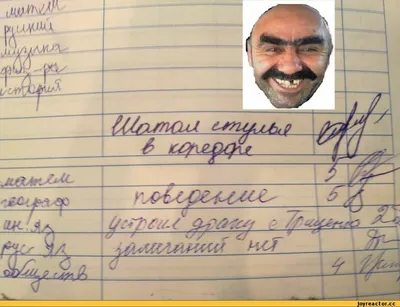 матем
русский
музыка
физ-ра
история
Шатал стулья
в коредоре
матем 5
географ поведение 5
ин. яз устроил драку с Гриценко 2
рус яз замечаний нет
обществ 4
joyreactor.cc